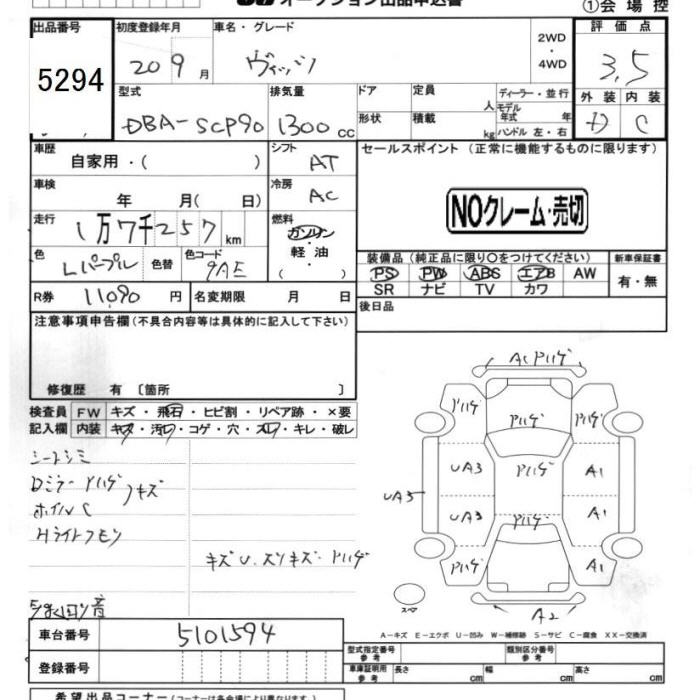 オークション出品申込書
①会場控
出品番号 初度登録年月 車名・グレード 評価点
5294 20 9月 ヴィッツ 2WD・4WD 3.5
型式 排気量 ドア 定員 人 ディーラー・並行 外装 内装
DBA-SCP90 1300cc 形状 積載 kg モデル年式 年 ハンドル 左・右 D C
車歴 自家用・( ) シフト AT セールスポイント (正常に機能するものに限ります)
車検 年 月( 日) 冷房 AC
NOクレーム・売切
走行 1万7千257km 燃料 ガソリン 軽油 ( )
色 Lパープル 色替 色コード 9AE
装備品 (純正品に限り○をつけてください) 新車保証書
PS PW ABS エアB AW 有・無
SR ナビ TV カワ
R券 11,090円 名変期限 月 日 後日品
注意事項申告欄(不具合内容等は具体的に記入して下さい)
修復歴 有 〔箇所 〕
検査員 FW キズ・飛石・ヒビ割・リペア跡・×要
記入欄 内装 キズ・汚れ・コゲ・穴・スレ・キレ・破レ
シートシミ
Dミラー Pハゲ キズ
ホイルC
Hライトクモリ
キズU.スリキズ.Pハゲ
ACPハゲ
Pハゲ Pハゲ Pハゲ
UA3 Pハゲ A1
UA3
UA3 Pハゲ A1
Pハゲ A1
スペア
A2
A-キズ E-エクボ U-凹み W-補修跡 S-サビ C-腐食 XX-交換済
車台番号 5101594
登録番号
型式指定番号 参考 類別区分番号 参考
車庫証明用 参考 長さ cm 幅 cm 高さ cm
希望出品コーナー(コーナーは各会場により異なります)